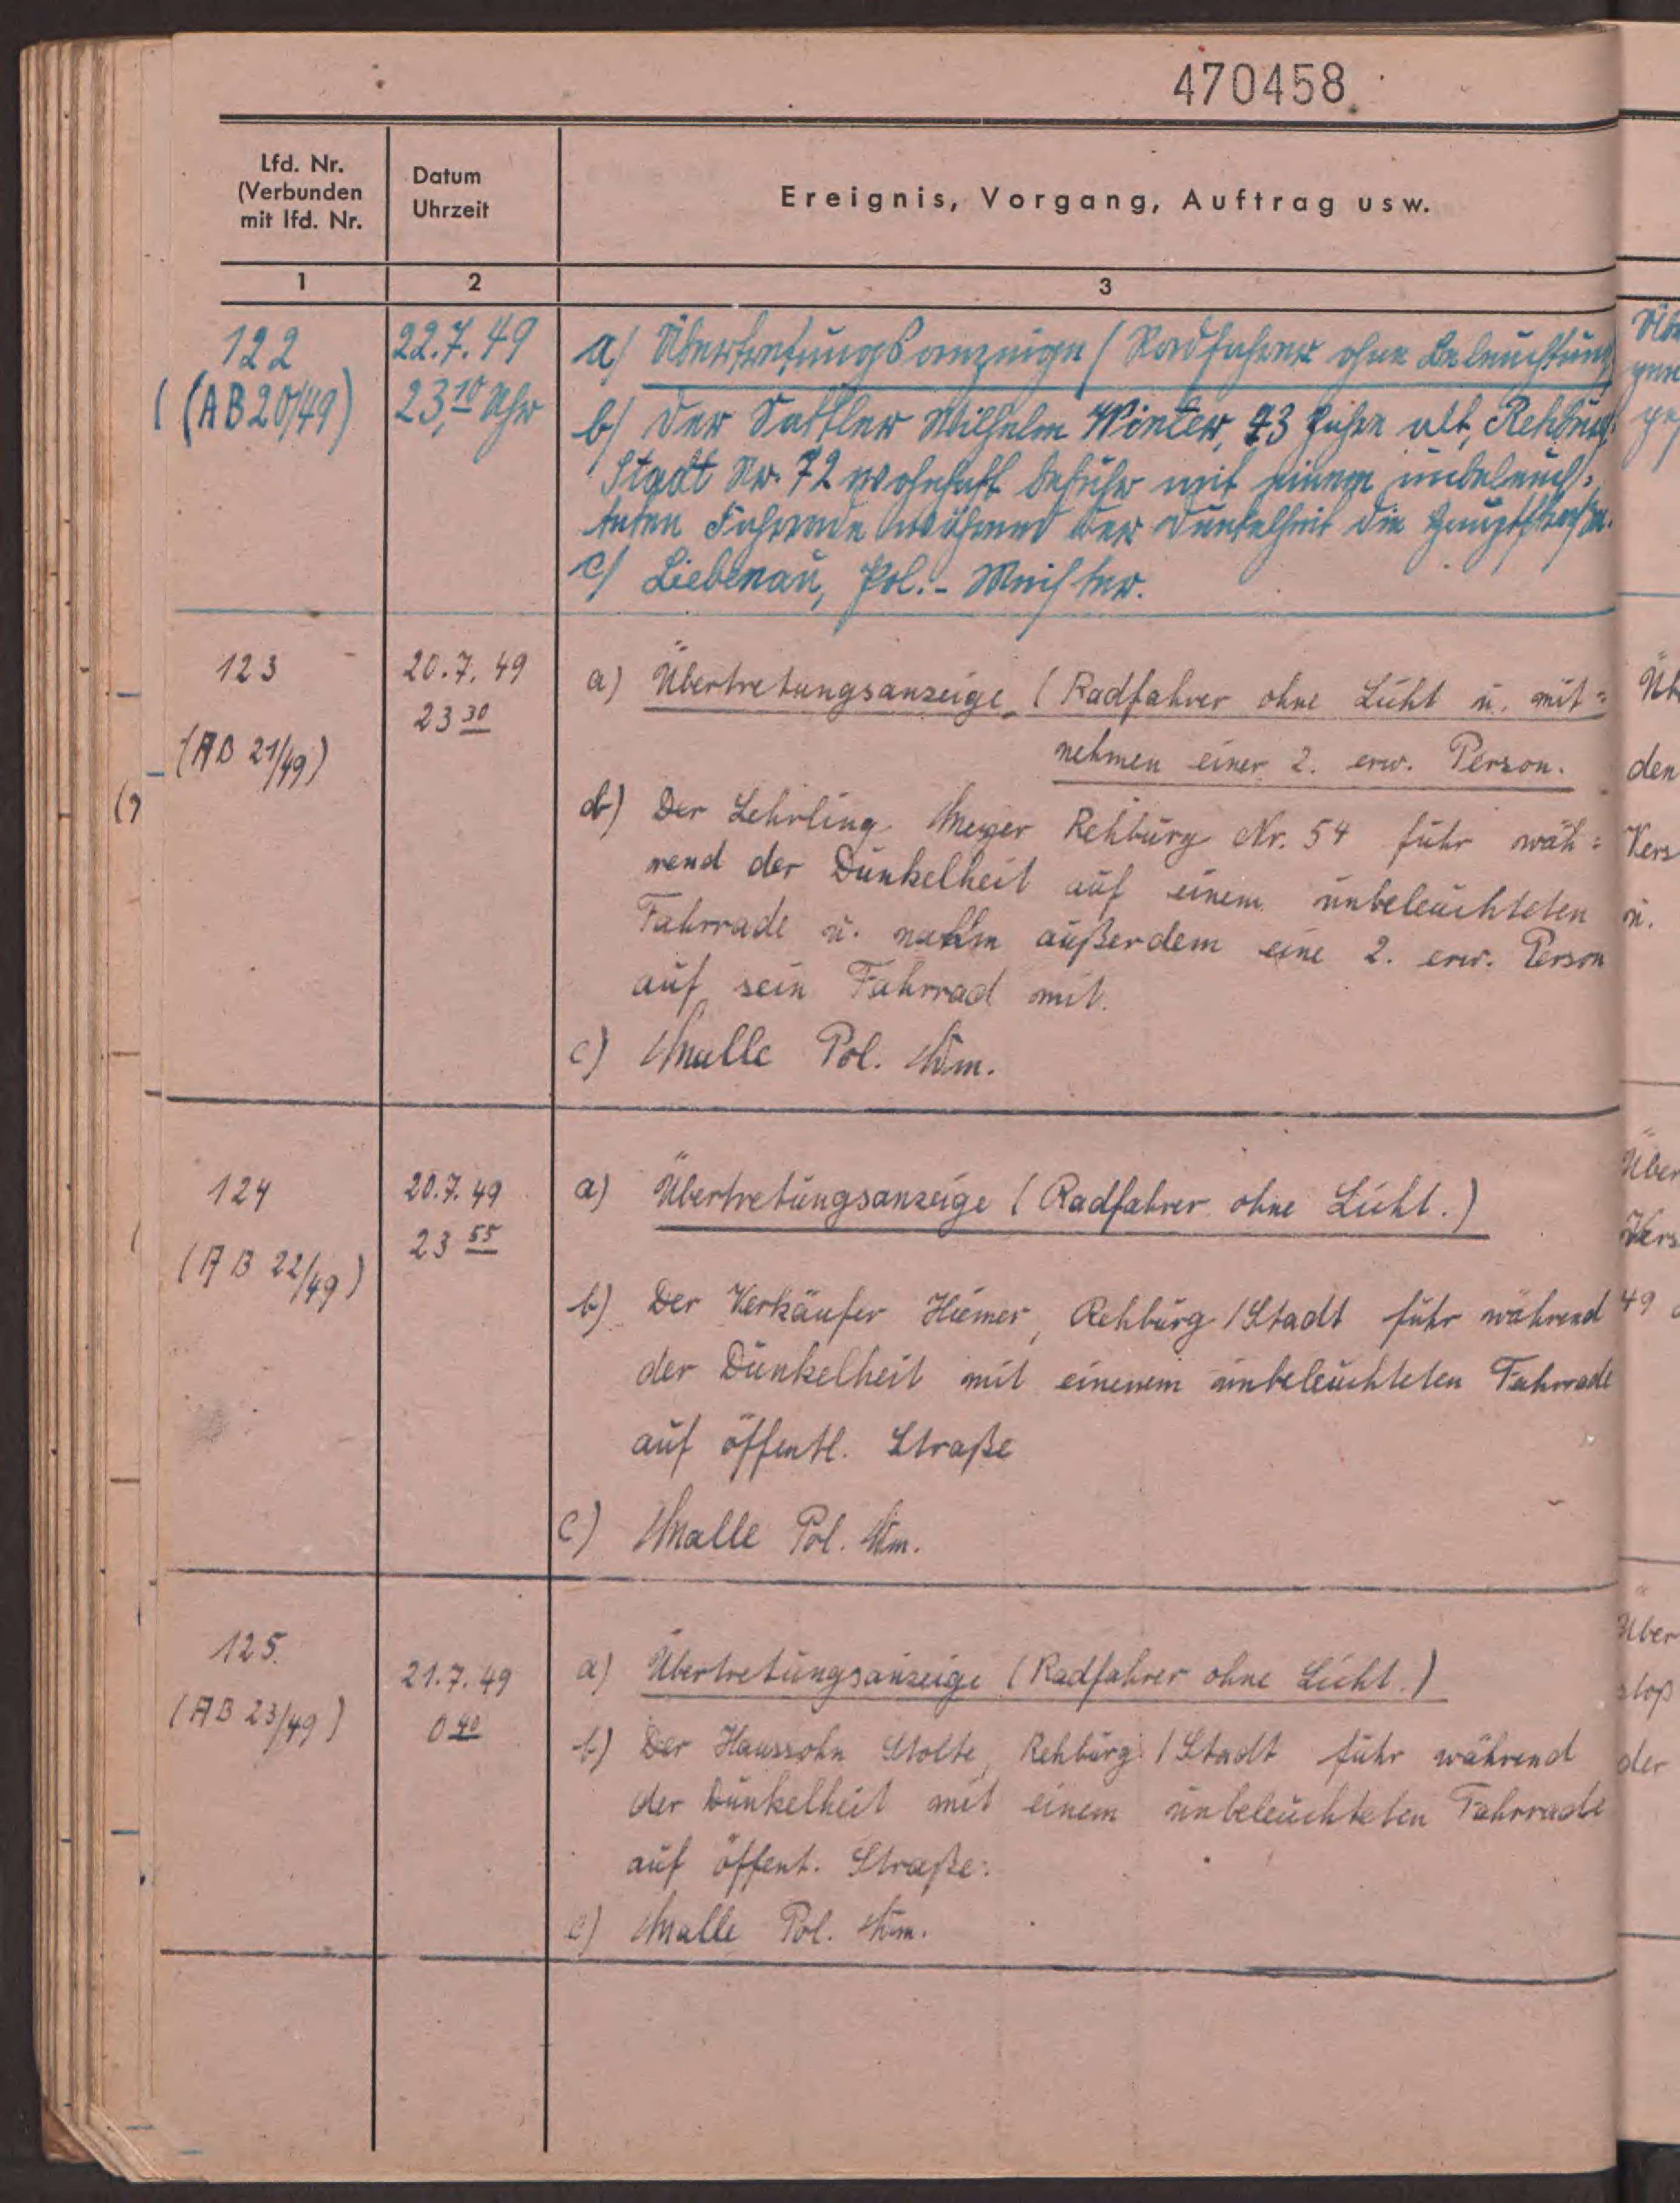 470458
Lfd. Nr.
(Verbunden
mit lfd. Nr.
Datum
Uhrzeit
Ereignis, Vorgang, Auftrag usw.
1
2
3
122
(AB 20/49)
22.7.49
23,10 Uhr
a) Übertretungsanzeige (Radfahrer ohne Beleuchtung
b) Der Sattler Wilhelm Winter, 43 Jahre alt, Rehburg
Stadt Nr. 72 wohnhaft befuhr mit einem unbeleuch-
teten Fahrrade während der Dunkelheit die Hauptstraße.
c) Liebenau, Pol.-Meister.
123
(AB 21/49)
20.7.49
23 30
a) Übertretungsanzeige (Radfahrer ohne Licht u. mit=
nehmen einer 2. erw. Person.
b) Der Lehrling Meyer Rehburg Nr. 54 fuhr wäh=
rend der Dunkelheit auf einem unbeleuchteten
Fahrrade u. nahm außerdem eine 2. erw. Person
auf sein Fahrrad mit.
c) Malle Pol. Wm.
124
(AB 22/49)
20.7.49
23 55
a) Übertretungsanzeige (Radfahrer ohne Licht.)
b) Der Verkäufer Rehburg/Stadt fuhr während
der Dunkelheit mit einenem unbeleuchteten Fahrrade
auf öffentl. Straße
c) Malle Pol. Wm.
125.
(AB 23/49)
21.7.49
0 40
a) Übertretungsanzeige (Radfahrer ohne Licht.)
b) Der Haussohn Stolte, Rehburg/Stadt fuhr während
der Dunkelheit mit einem unbeleuchteten Fahrrade
auf öffent. Straße.
c) Malle Pol. Wm.